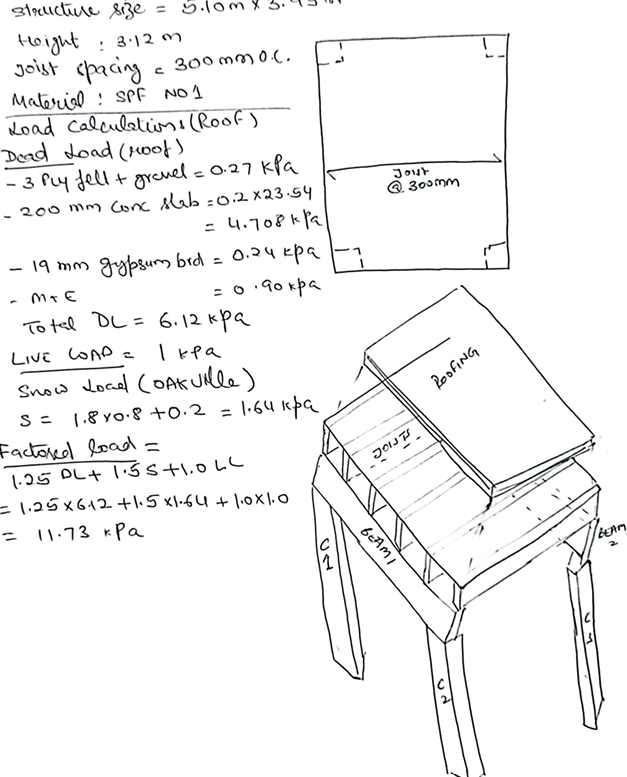 Structure size = 5.10m x 3.
Height : 3.12 m
Joist spacing = 300 mm O.C.
Material : SPF NO 1
Load Calculations (Roof)
Dead Load (roof)
- 3 Ply felt + gravel = 0.27 kPa
- 200 mm Conc slab = 0.2 x 23.54
= 4.708 kPa
- 19 mm gypsum brd = 0.24 kPa
- M+E = 0.90 kPa
Total DL = 6.12 kPa
LIVE LOAD = 1 kPa
Snow Load (OAKVille)
S = 1.8 x 0.8 + 0.2 = 1.64 kPa
Factored load =
1.25 DL + 1.5 S + 1.0 LL
= 1.25 x 6.12 + 1.5 x 1.64 + 1.0 x 1.0
= 11.73 kPa
JOIST
@ 300mm
ROOFING
JOISTS
BEAM 1
BEAM
2
C
1
C
2
C
3